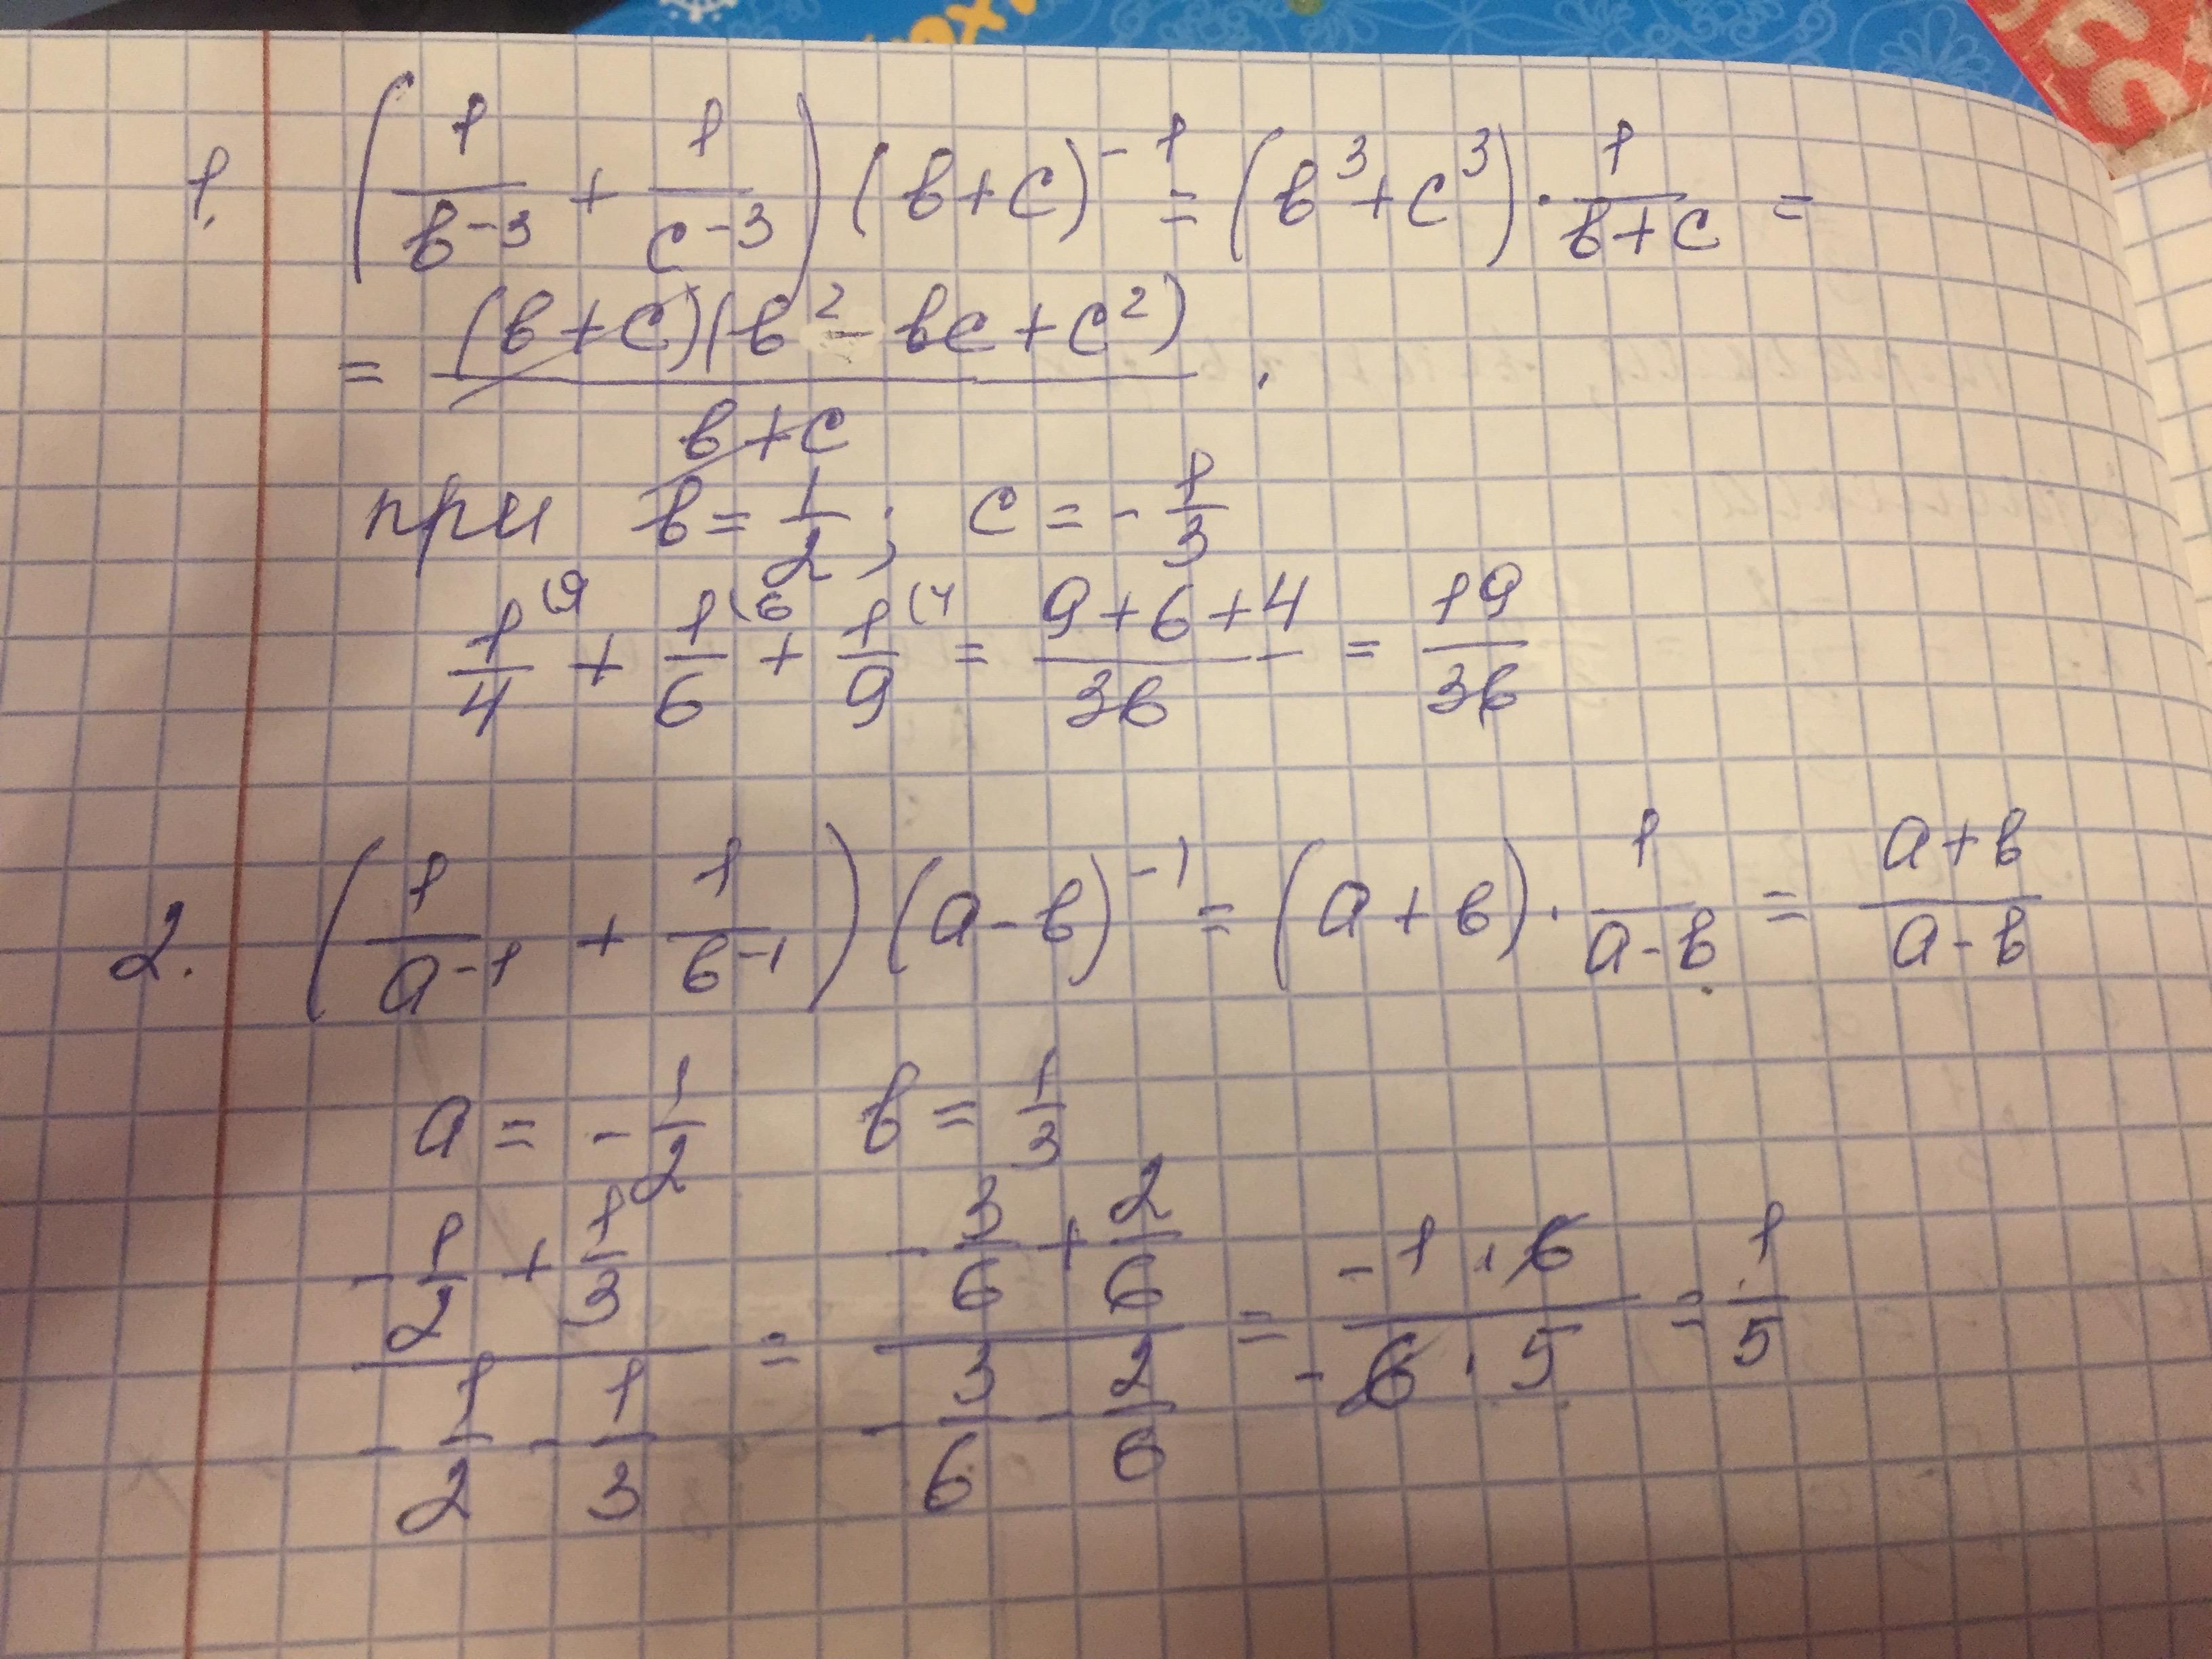 1. (1/b⁻³ + 1/c⁻³)(b+c)⁻¹ = (b³+c³)·1/(b+c) =
= (b+c)(b²-bc+c²)/(b+c).
при b=1/2; c=-1/3
1/4⁽⁹ + 1/6⁽⁶ + 1/9⁽⁴ = (9+6+4)/36 = 19/36
2. (1/a⁻¹ + 1/b⁻¹)(a-b)⁻¹ = (a+b)·1/(a-b) = (a+b)/(a-b)
a = -1/2 b = 1/3
(-1/2+1/3)/(-1/2-1/3) = (-3/6+2/6)/(-3/6-2/6) = (-1·6)/(-6·5) = 1/5